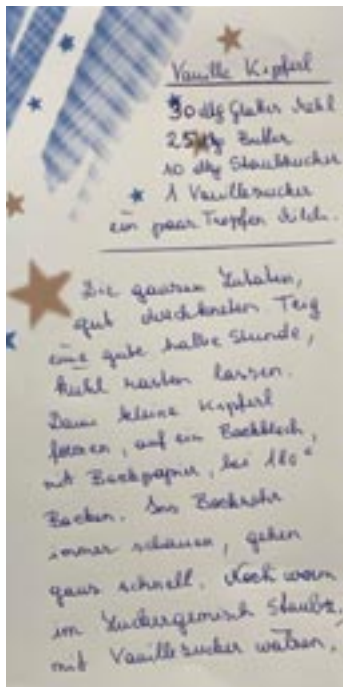 Vanille Kipferl
30 dkg Glattes Mehl
25 dkg Butter
10 dkg Staubzucker
1 Vanillezucker
ein paar Tropfen Milch.
Die ganzen Zutaten,
gut durchkneten. Teig
eine gute halbe Stunde,
kühl rasten lassen.
Dann kleine Kipferl
formen, auf ein Backblech,
mit Backpapier, bei 180°
Backen. Ins Backrohr
immer schauen, gehen
ganz schnell. Noch warm
im Zuckergemisch Staubz.
mit Vanillezucker wälzen.